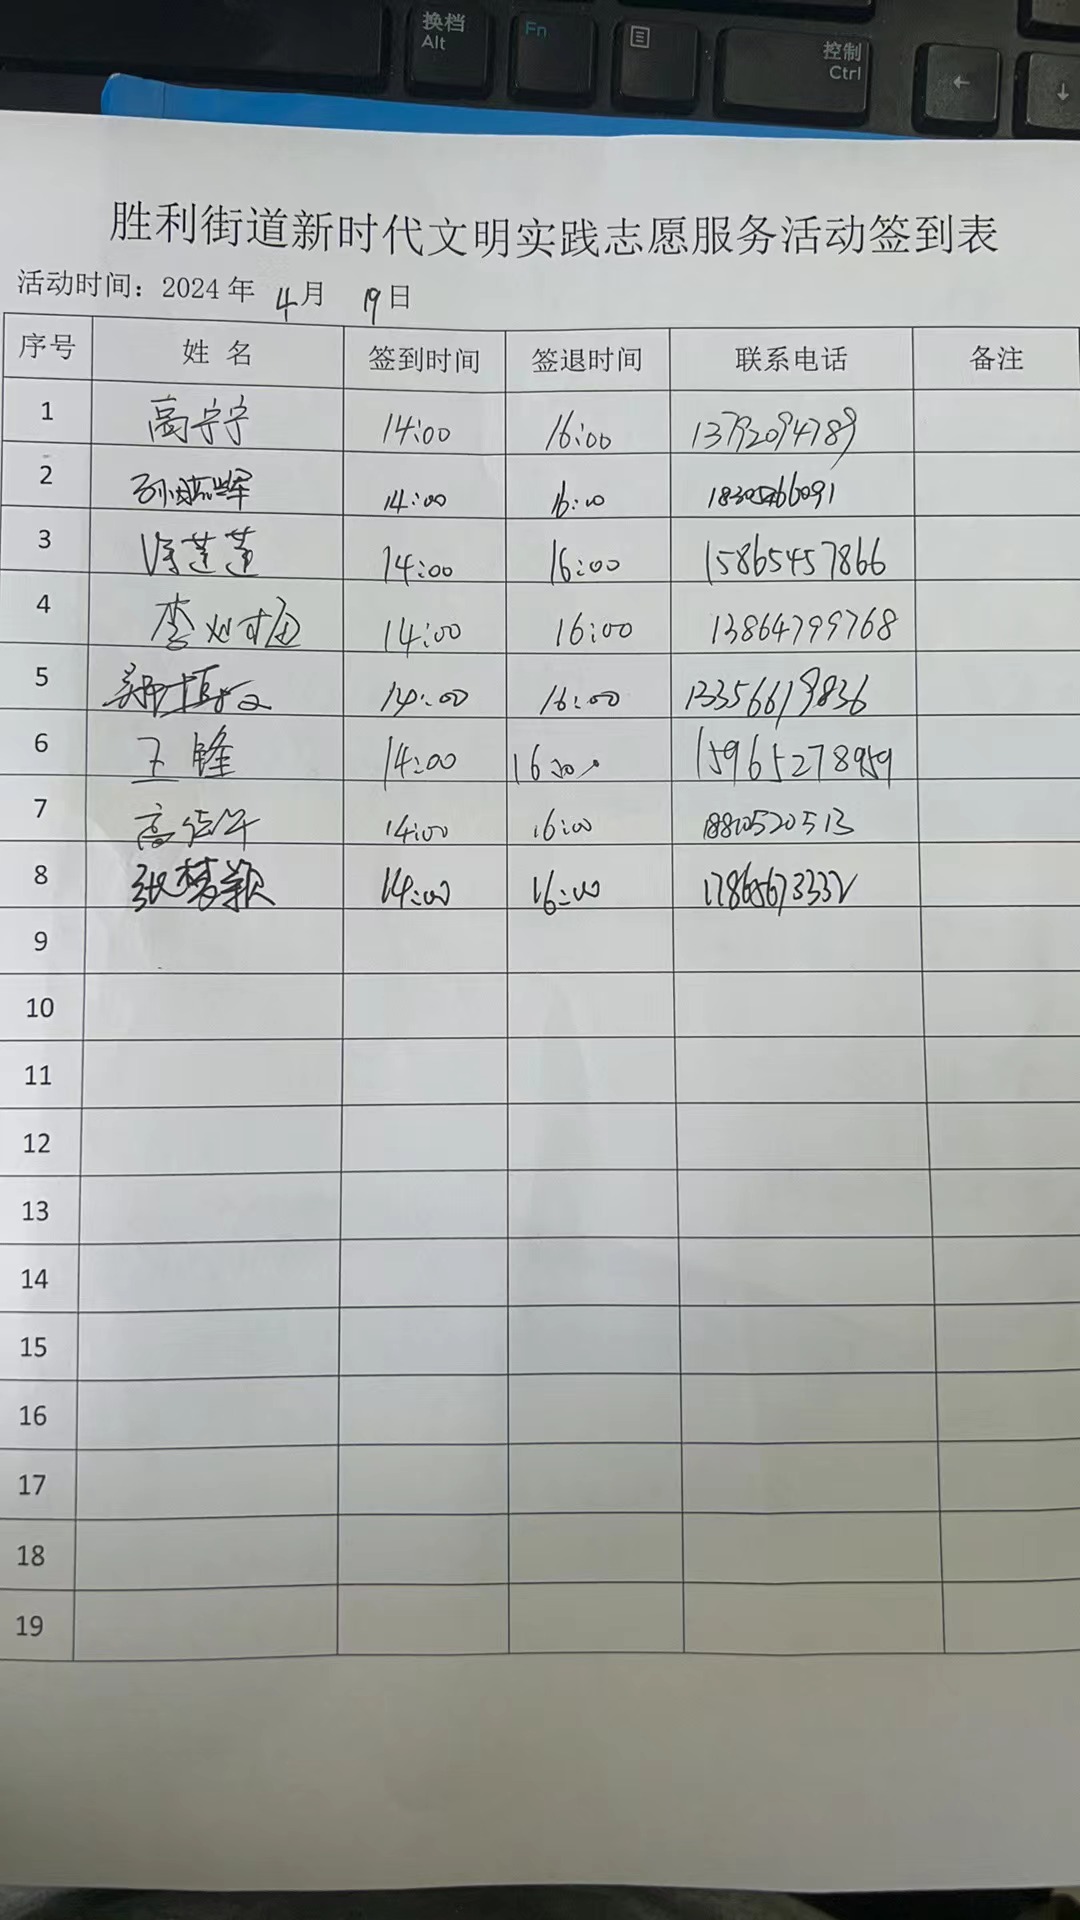 换档
Alt
Fn
控制
Ctrl
←
↓
胜利街道新时代文明实践志愿服务活动签到表
活动时间：2024 年 4月 19日
序号 姓 名 签到时间 签退时间 联系电话 备注
1 高宁宁 14:00 16:00 13792094789
2 14:00 16:00
3 徐莲莲 14:00 16:00 15865457866
4 李 14:00 16:00 13864799768
5 14:00 16:00 13356619836
6 王锋 14:00 15965278959
7 高 14:00 16:00 18810520513
8 张梦颖 14:00 16:00 17865673332
9
10
11
12
13
14
15
16
17
18
19